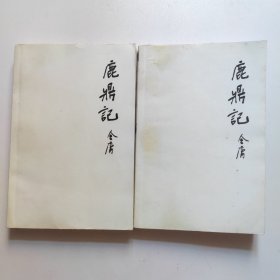 鹿鼎記
金庸
鹿鼎記
金庸